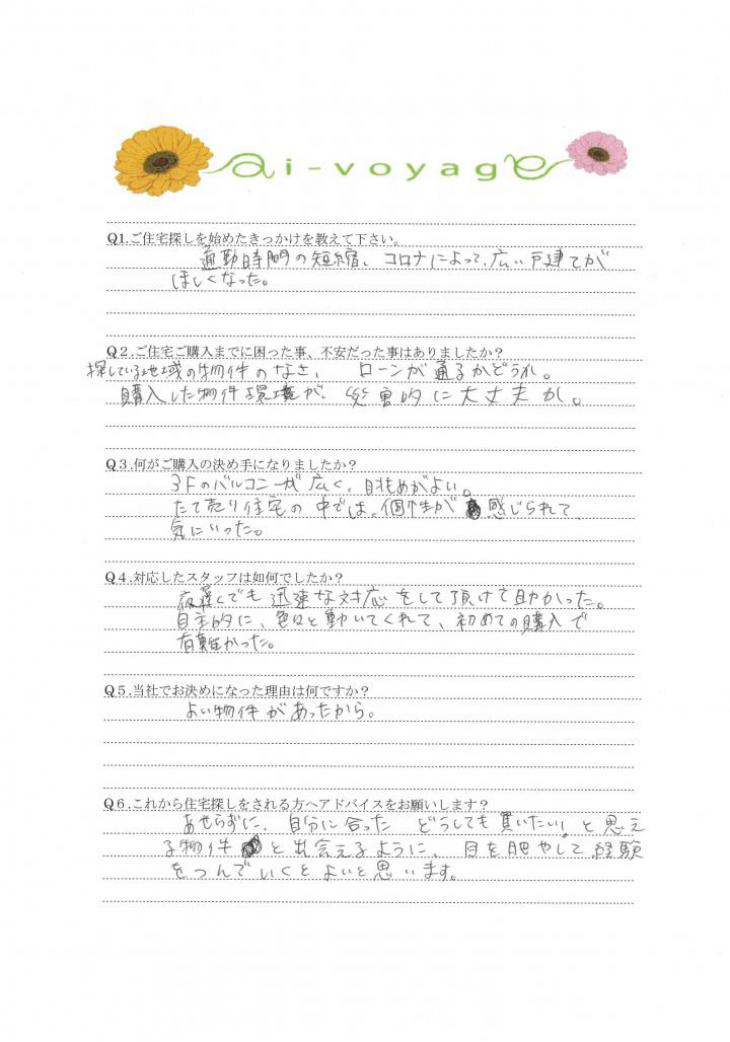 ai-voyage
Q1.ご住宅探しを始めたきっかけを教えて下さい。
通勤時間の短縮、コロナによって、広い戸建てが
ほしくなった。
Q2.ご住宅ご購入までに困った事、不安だった事はありましたか?
探している地域の物件のなさ、 ローンが通るかどうか。
購入した物件環境が、災害的に大丈夫か。
Q3.何がご購入の決め手になりましたか?
3Fのバルコニーが広く、眺めがよい。
たて売り住宅の中では、個性が感じられて
気にいった。
Q4.対応したスタッフは如何でしたか?
夜遅くでも迅速な対応をして頂けて助かった。
自主的に、色々と動いてくれて、初めての購入で
有難かった。
Q5.当社でお決めになった理由は何ですか?
よい物件があったから。
Q6.これから住宅探しをされる方へアドバイスをお願いします?
あせらずに、自分に合った どうしても買いたい!と思え
る物件と出会えるように、目を肥やして経験
をつんでいくとよいと思います。